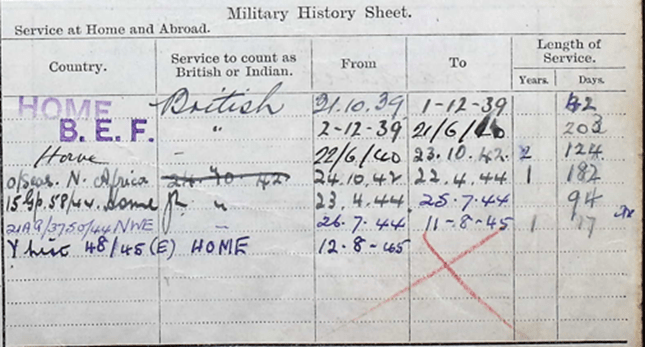 Military History Sheet.
Service at Home and Abroad.
Country. Service to count as British or Indian. From To Length of Service. Years. Days.
HOME British 21.10.39 1-12-39 42
B. E. F. " 2-12-39 21/6/40 203
Home - 22/6/40 23.10.42. 2 124
O/Seas. N. Africa 24.10.42 24.10.42 22.4.44 1 182
15 Gp. 58/44. Home " 23.4.44 25.7.44 94
21A9/3750/44 NWE - 26.7.44 11-8-45 1 17
Y List 48/45 (E) HOME 12-8-45